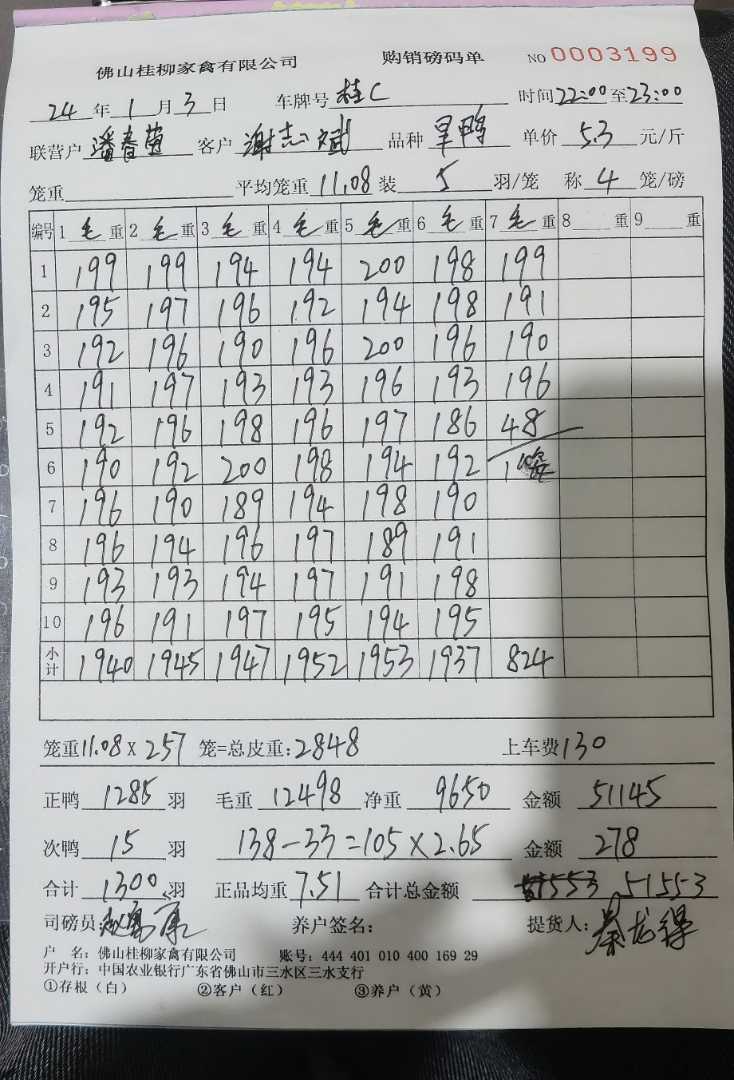 佛山桂柳家禽有限公司 购销磅码单 NO 0003199
24年1月3日 车牌号 桂C 时间22:00至23:00
联营户 潘春莲 客户 谢志斌 品种 旱鸭 单价 5.3 元/斤
笼重 平均笼重 11.08 装 5 羽/笼 称 4 笼/磅
编号 1 毛 重 2 毛 重 3 毛 重 4 毛 重 5 毛 重 6 毛 重 7 毛 重 8 重 9 重
1 199 199 194 194 200 198 199
2 195 197 196 192 194 198 191
3 192 196 190 196 200 196 190
4 191 197 193 193 196 193 196
5 192 196 198 196 197 186 48
6 190 192 200 198 194 192 1
7 196 190 189 194 198 190
8 196 194 196 197 189 191
9 193 193 194 197 191 198
10 196 191 197 195 194 195
小计 1940 1945 1947 1952 1953 1937 824
笼重11.08X 257 笼=总皮重:2848 上车费130
正鸭 1285 羽 毛重 12498 净重 9650 金额 51145
次鸭 15 羽 138-33=105×2.65 金额 278
合计 1300 羽 正品均重 7.51 合计总金额 51553
司磅员: 养户签名: 提货人: 秦龙得
户 名: 佛山桂柳家禽有限公司 账号: 444 401 010 400 169 29
开户行: 中国农业银行广东省佛山市三水区三水支行
①存根(白) ②客户(红) ③养户(黄)